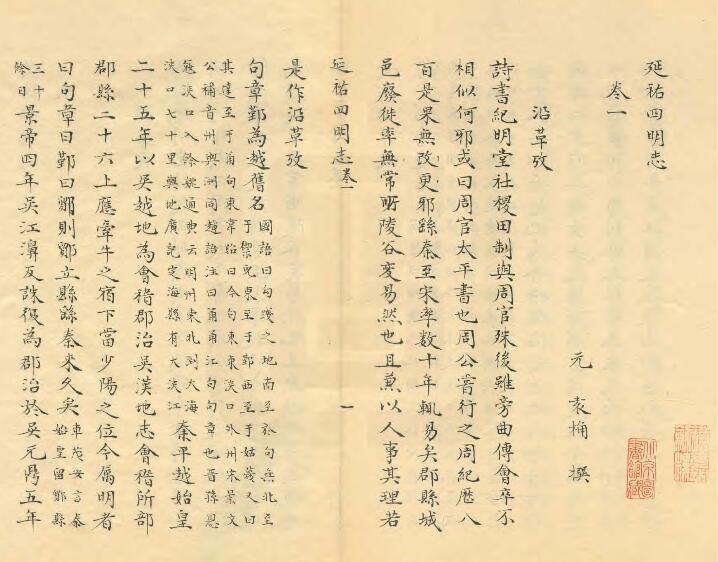 延祐四明志
卷一
元 袁桷 撰
沿革攷
詩書紀明堂社稷田制與周官殊後雖旁曲傅會卒不
相似何邪或曰周官太平書也周公嘗行之周紀歷八
百是果無改更邪繇秦至宋率數十年輒易矣郡縣城
邑廢徙率無常所陵谷變易然也且兼以人事其理若
延祐四明志 卷一 一
是作沿革攷
句章鄞為越舊名
國語曰句踐之地南至於句無北至
于禦兒東至于鄞西至于姑蔑又曰
其達至于甬句東韋昭曰今句東東浹口外州宋景文
公補音州與洲同越語注曰甬甬江句句章也晉孫恩
寇浹口入餘姚通典云明州東北到大海
浹口七十里輿地廣記定海縣有大浹江
秦平越始皇
二十五年以吳越地為會稽郡治吳漢地志會稽所部
郡縣二十六上應牽牛之宿下當少陽之位今屬明者
曰句章曰鄞曰鄮則鄮立縣繇秦來久矣
車茂安言秦
始皇留鄮縣
三十
餘日
景帝四年吳江濞反誅復為郡治於吳元鼎五年